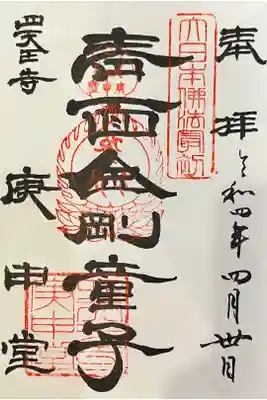 奉拝
令和四年四月卅日
大日本佛法最初
青面金剛童子
四天王寺
庚申堂